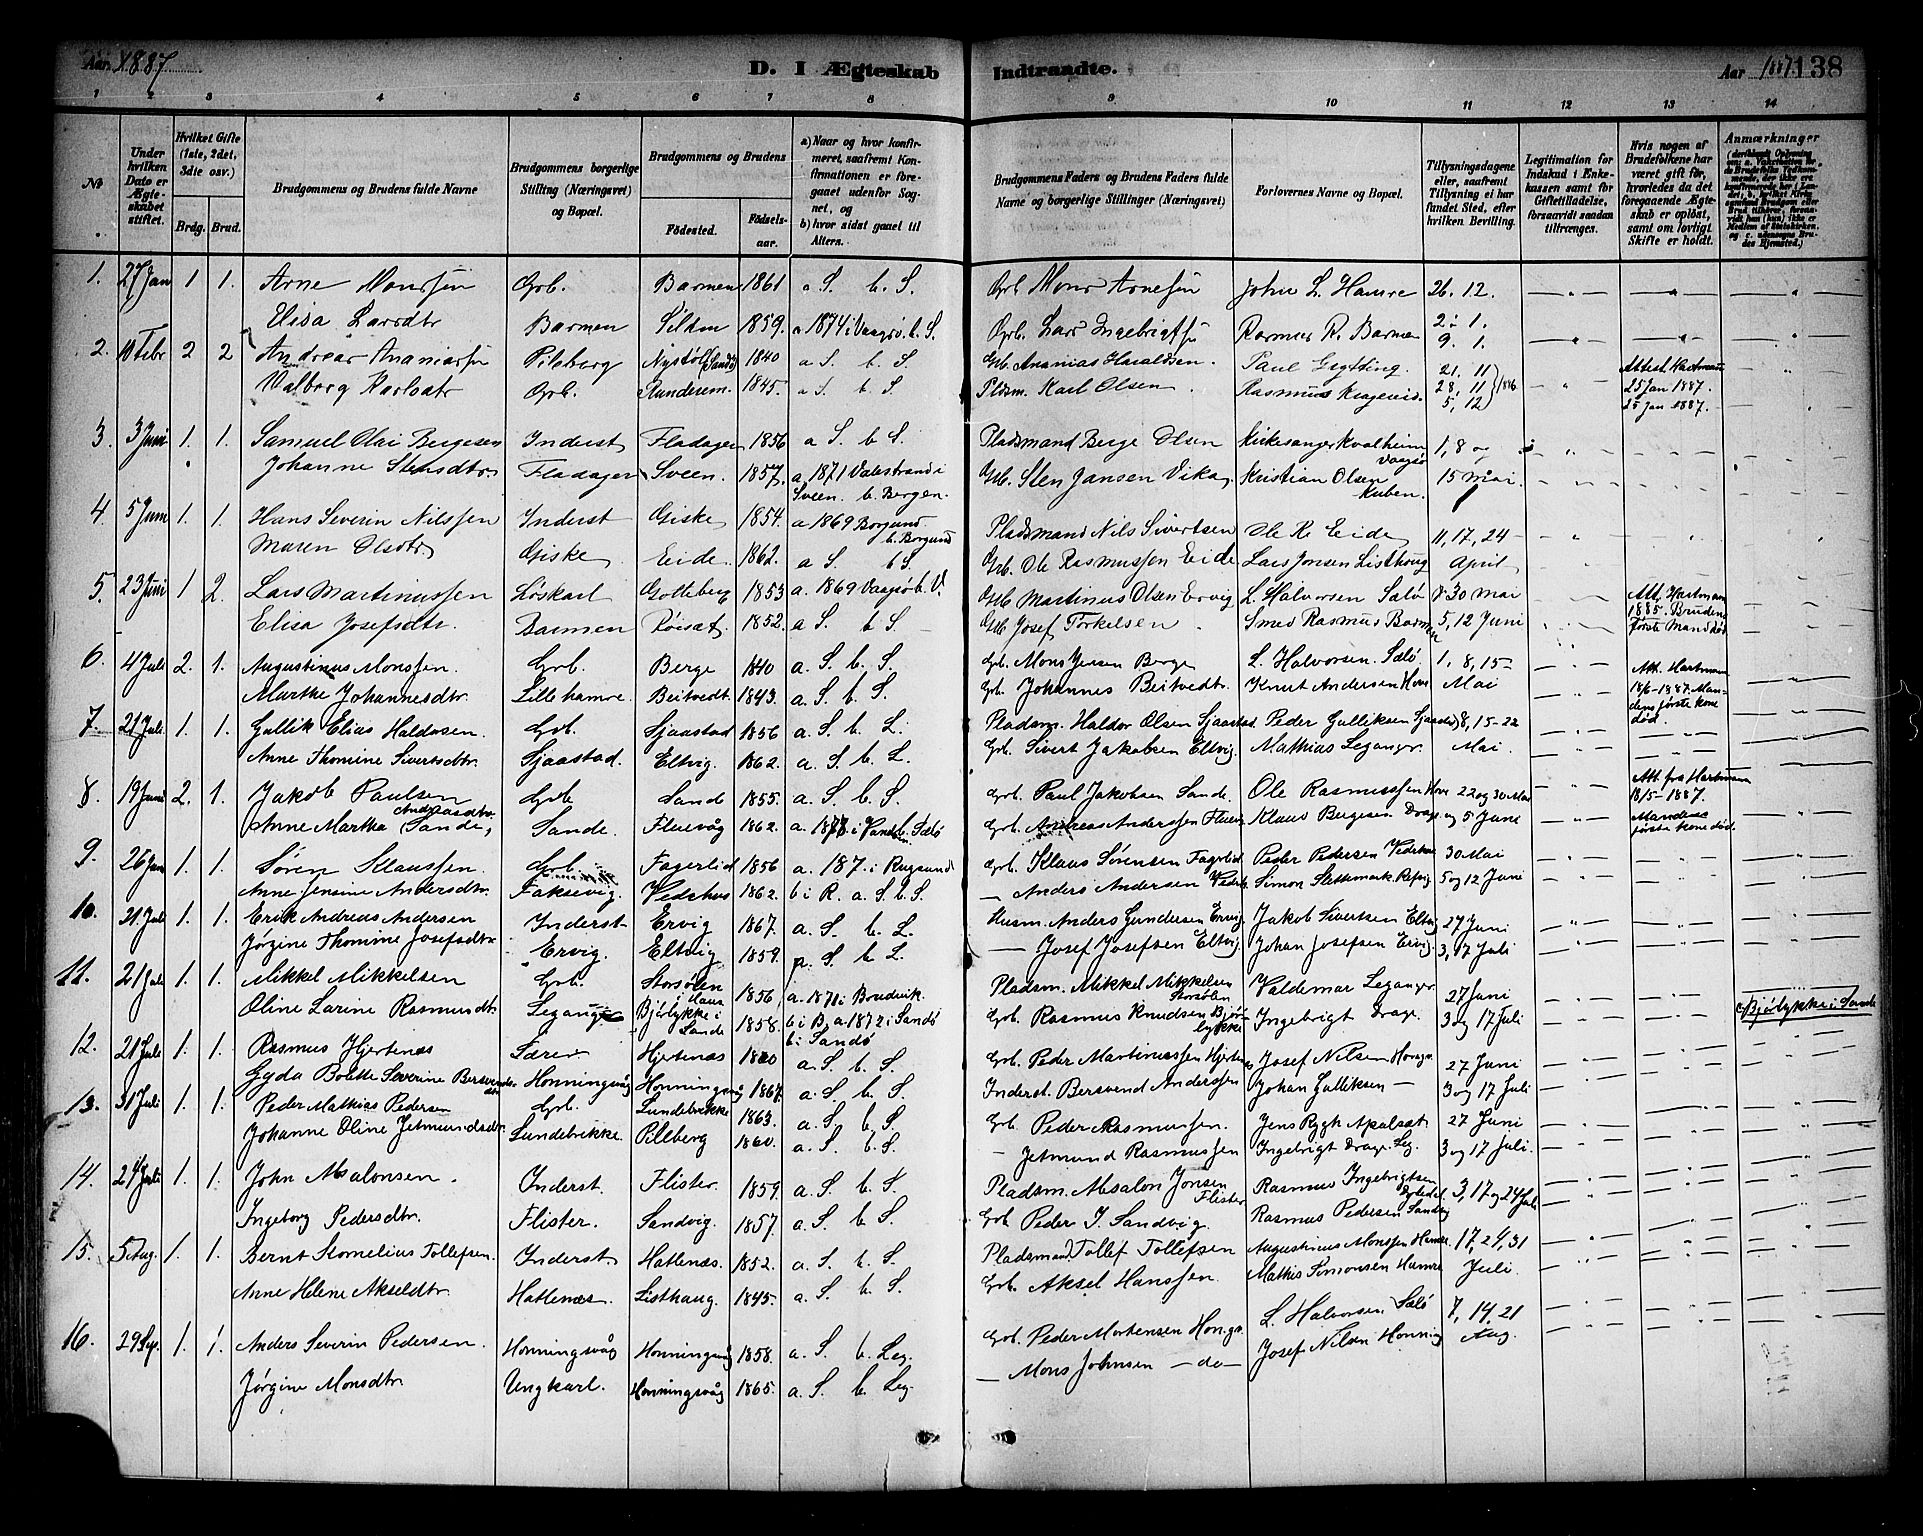 Aar 1887
D. I Ægteskab Indtraadte.
Aar 1887 138
1 2 3 4 5 6 7 8 9 10 11 12 13 14
No
Under hvilken Dato er Ægteskabet stiftet.
Hvilket Gifte (1ste, 2det, 3die osv.)
Brdg. Brud.
Brudgommens og Brudens fulde Navne
Brudgommens borgerlige Stilling (Næringsvei) og Bopæl.
Brudgommens og Brudens
Fødested. Fødselsaar.
a) Naar og hvor konfirmeret, saafremt Konfirmationen er foregaaet udenfor Sognet, og
b) hvor sidst gaaet til Alters.
Brudgommens Faders og Brudens Faders fulde Navne og borgerlige Stillinger (Næringsvei)
Forlovernes Navne og Bopæl.
Tillysningsdagene eller, saafremt Tillysning ei har fundet Sted, efter hvilken Bevilling.
Legitimation for Indskud i Enkekassen samt for Giftetilladelse, forsaavidt saadan tiltrænges.
Hvis nogen af Brudefolkene har været gift før, hvorledes da det foregaaende Ægteskab er opløst, samt om lovligt Skifte er holdt.
Anmærkninger
1. 27 Jan 1 1. Arne Monssen Grb. Barmen 1861 a S. b. S. Grb Mons Arnesen John L. Hamre 26. 12.
Elisa Larsdtr Barmen Silden 1859. a 1874 i Vaagsö b. S. Grb. Lars Ingebrigtsen Rasmus R. Barmen 2 1. 9. 1.
2. 10 Febr 2 2 Andreas Ananiassen Pileberg Nystöl (Sandö) 1840 a S. b. S. Grb Ananias Haraldsen. Paul 21. 11 Attest Hartmann
Valborg Karlsdtr Grb. Runderem. 1845. a S. b. S. Pladsm. Karl Olsen Rasmus 28, 11 5, 12 1886 25 Jan 1887. 25 Jan 1887.
3. 3 Juni 1. 1. Samuel Olai Bergesen Inderst Fladager 1856 a S. b S. Pladsmand Berge Olsen Kirkesanger Kvalheim Vaagsö 1, 8 og
Johanne Stensdtr. Fladager Sveen. 1857. a. 1871 Valestrand i Sveen. b. Bergen. Grb. Sten Jansen Vika Kristian Olsen Kuben. 15 Mai.
4. 5 Juni 1. 1. Hans Severin Nilssen Inderst Giske 1854. a 1869 Borgund. b. Borgund Pladsmand Nils Sivertsen Ole R. Eide 11, 17, 24
Maren Olsdtr Giske Eide. 1862. a S. b S. Grb. Ole Rasmussen Eide Lars Jonsen Listhoug April
5. 23 Juni 1 2. Lars Martinussen Löskarl Gotteberg 1853 a. 1869 Vaagsö b. V. Grb Martinus Olsen Ervig L. Halvorsen Salö 30 Mai Att. Hartmann 1885. Brudens
Elisa Josefsdtr. Barmen Röisæt. 1852. a S. b S. Grb Josef Torkelsen Smed Rasmus Barmen 5, 12 Juni første Mand död
6. 4 Juli 2. 1. Augustinus Monssen. Grb. Berge 1840 a. S. b. S. Grb. Mons Jensen Berge L. Halvorsen Salö. 1, 8, 15 Att. Hartmann
Marthe Johannesdtr. Lillehamre. Beitvedt. 1843. a. S. b. S. Grb. Johannes Beitvedt. Knut Andersen Hove Mai 18/6-1887. Mandens første kone död.
7. 21 Juli 1. 1. Gullik Elias Haldorsen. Grb. Sjaastad 1856 a. S. b. L. Pladsm. Haldor Olsen Sjaastad Peder Gulliksen Sjaastad 8, 15-22
Anne Thomine Sivertsdtr. Sjaastad. Eltvig. 1862. a. S. b. L. Grb. Sivert Jakobsen Eltvig. Mathias Leganger. Mai.
8. 19 Juni 2. 1. Jakob Paulsen Grb Sande 1855. a. S. b. S. Grb. Paul Jakobsen Sande. Ole Rasmussen Hove 22 og 30 Mai Att. fra Hartmann 18/5-1887.
Anne Martha Andreasdtr. Sande, Sande. Fluevåg 1862. a. 1877 i Vandb. Salö Grb. Andreas Anderssen Fluevåg Klaus Bergesen Drage og 5 Juni Mandens første kone död.
9. 26 Juni 1. 1. Søren Klaussen Grb. Fagerlid 1856 a. 187. i Rugsund Grb. Klaus Sørensen Fagerlid Peder Pedersen Vedehus 30 Mai
Anne Jensine Andersdtr. Faksevig. Vedehus 1862. b i R. a. S. b. S. — Anders Andersen Vedeh. Simon Slettemark Refvig 5 og 12 Juni
10. 21 Juli 1. 1. Erik Andreas Andersen Inderst Ervig 1867. a. S. b. L. Husm. Anders Gundersen Ervig Jakob Sivertsen Eltvig 27 Juni
Jørgine Thomine Josefsdtr. Ervig. Eltvig 1859. a. S. b. L. — Josef Josefsen Eltvig. Johan Josefsen Ervig. 3, 17 Juli
11. 21 Juli 1. 1. Mikkel Mikkelsen Grb. Storsølen i Haus 1856 a. 1871 i Bruvik. Pladsm. Mikkel Mikkelsen Storsølen Valdemar Leganger 27 Juni
Oline Larine Rasmusdtr. Leganger Bjørlykke i Sande 1858. b i B. a. 1872 i Sandö b. i Sandö Grb. Rasmus Knudsen Bjørlykke Ingebrigt Drage. 3 og 17 Juli c. Bjørlykke i Sande
12. 21 Juli 1. 1. Rasmus Hjertenæs Særer Hjertenæs 1860 a. S. b. S. Grb. Peder Martinussen Hjertenæs Josef Nilsen Honngv. 27 Juni
Gyda Bolette Severine Bersvendsdtr. Honningsvåg Honningsvåg 1867. a. S. b. S. Inderst. Bersvend Anderssen Johan Gulliksen — 3 og 17 Juli
13. 31 Juli 1. 1. Peder Mathias Pedersen Grb. Lundebrekke 1863. a. S. b. S. Grb. Peder Rasmussen. Jens Rygh Apalsæt 27 Juni
Johanne Oline Jetmundsdtr. Lundebrekke. Pilleberg 1860. a. S. b. S. — Jetmund Rasmussen Ingebrigt Drage. Leg. 3 og 17 Juli.
14. 24 Juli 1. 1. John Absalonsen. Inderst. Flister. 1859. a. S. b. S. Pladsm. Absalon Jonsen Flister Rasmus Ingebrigtsen 3, 17 og 24 Juli
Ingeborg Pedersdtr. Flister. Sandvig. 1857. a. S. b. S. Grb. Peder J. Sandvig. Rasmus Pedersen Sandvig
15. 5 Aug. 1. 1. Bernt Kornelius Tollefsen. Inderst. Hattenæs. 1852. a. S. b. S. Pladsmand Tollef Tollefsen Augustinus Monssen Hamre. 17, 24, 31
Anne Helene Akseldtr. Hattenæs. Listhaug. 1845. a. S. b. S. Grb. Aksel Hanssen. Mathis Simonsen Hamre Juli.
16. 29 Sep. 1. 1. Anders Severin Pedersen. Honningsvåg Honningsvåg 1858. a. S. b. Leg. Grb. Peder Mortensen Hongv. L. Halvorsen Salö 7, 14, 21
Jørgine Monsdtr. Ungkarl. Honningsvåg 1865. a. S. b. Leg. — Mons Johnsen — do — Josef Nilsen Honning Aug.